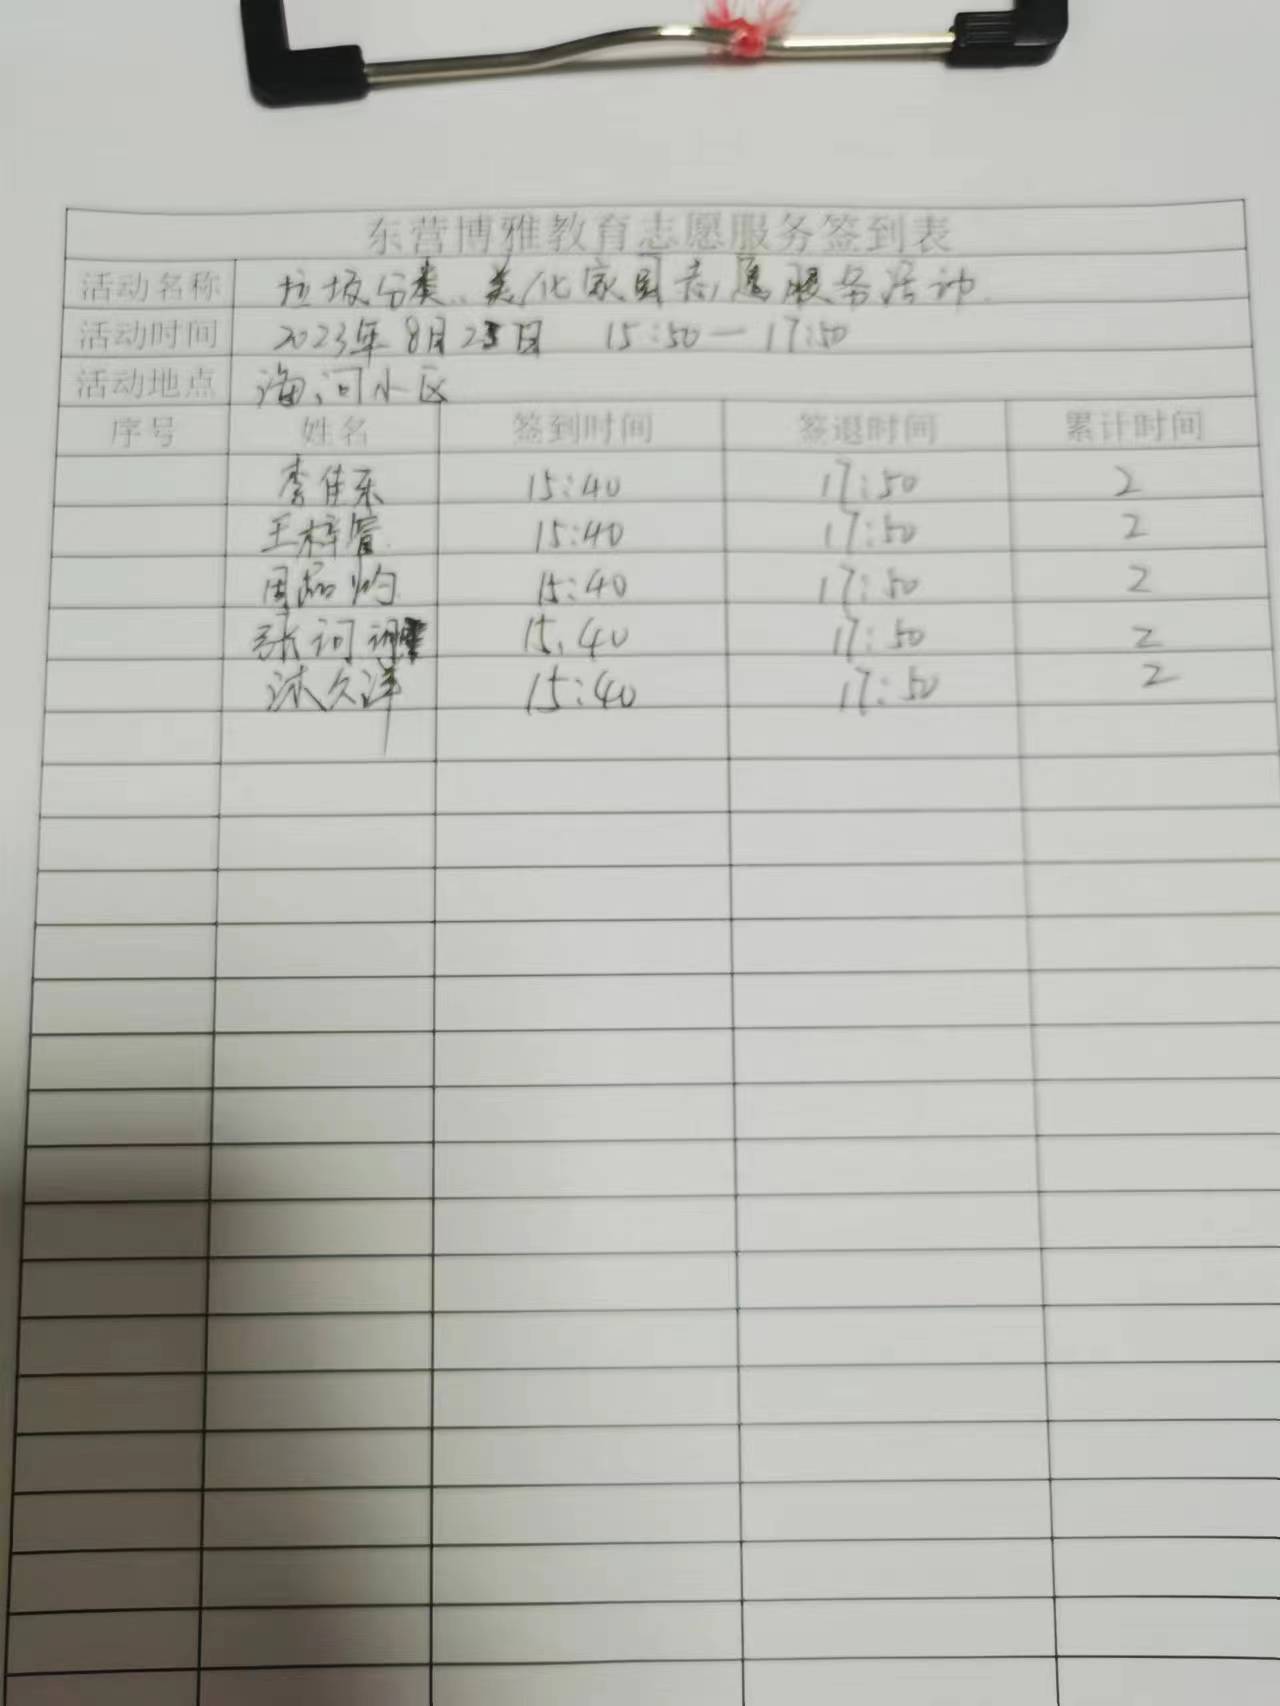 东营博雅教育志愿服务签到表
活动名称 垃圾分类、美化家园志愿服务活动
活动时间 2023年8月25日 15:50—17:50
活动地点 海河小区
序号 姓名 签到时间 签退时间 累计时间
李佳乐 15:40 17:50 2
王梓萱 15:40 17:50 2
周品灼 15:40 17:50 2
张诃 15:40 17:50 2
沐久洋 15:40 17:50 2